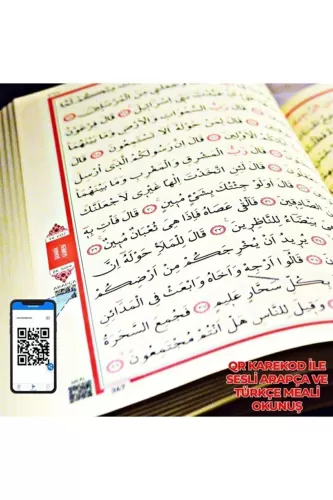 مِنَ الْمُرْسَلِينَ وَتِلْكَ نِعْمَةٌ
عَبَّدْتَ بَنِي إِسْرَائِيلَ قَالَ فِرْعَوْنُ
رَبُّ السَّمٰوَاتِ وَالْأَرْضِ وَمَا بَيْنَهُمَا
قَالَ لِمَنْ حَوْلَهُ أَلَا تَسْتَمِعُونَ قَالَ
الْأَوَّلِينَ قَالَ إِنَّ رَسُولَكُمُ الَّذِي أُرْسِلَ
قَالَ رَبُّ الْمَشْرِقِ وَالْمَغْرِبِ وَمَا بَيْنَهُمَا
قَالَ لَئِنِ اتَّخَذْتَ إِلٰهًا غَيْرِي لَأَجْعَلَنَّكَ
قَالَ أَوَلَوْ جِئْتُكَ بِشَيْءٍ مُبِينٍ قَالَ فَأْتِ بِهِ
الصَّادِقِينَ فَأَلْقَى عَصَاهُ فَإِذَا هِيَ ثُعْبَانٌ مُبِينٌ
بَيْضَاءُ لِلنَّاظِرِينَ قَالَ لِلْمَلَإِ حَوْلَهُ إِنَّ
يُرِيدُ أَنْ يُخْرِجَكُمْ مِنْ أَرْضِكُمْ
قَالُوا أَرْجِهْ وَأَخَاهُ وَابْعَثْ فِي الْمَدَائِنِ
بِكُلِّ سَحَّارٍ عَلِيمٍ فَجُمِعَ السَّحَرَةُ
وَقِيلَ لِلنَّاسِ هَلْ أَنْتُمْ مُجْتَمِعُونَ
367
QR KAREKOD İLE
SESLİ ARAPÇA VE
TÜRKÇE MEALİ
OKUNUŞ